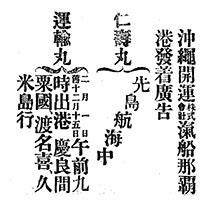 沖繩開運會社滊船那覇
港發着廣告
仁壽丸
先島航海中
運輸丸
二月一日午前九
舊十二月十五日
時出港慶良間
粟國渡名喜、久
米島行